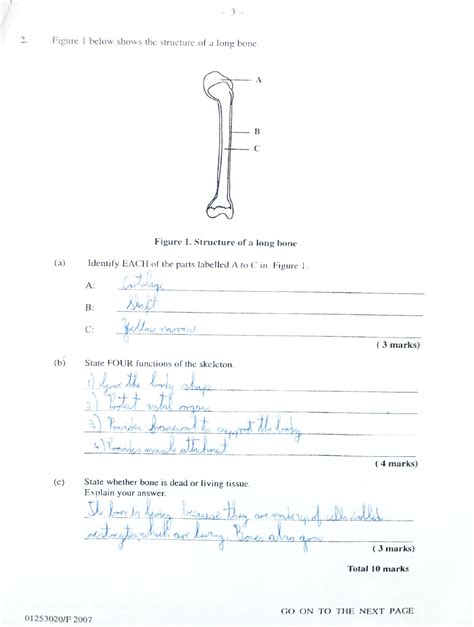 - 3 -
2. Figure 1 below shows the structure of a long bone.
A
B
C
Figure 1. Structure of a long bone
(a) Identify EACH of the parts labelled A to C in Figure 1.
A: Cartilage
B: Shaft
C: Yellow marrow
(3 marks)
(b) State FOUR functions of the skeleton.
1) Give the body shape
2) Protect vital organs
3) Provides framework to support the body
4) Provides muscle attachment
(4 marks)
(c) State whether bone is dead or living tissue.
Explain your answer.
The bone is living because they are made up of cells called
which are living. Bones also grow
(3 marks)
Total 10 marks
GO ON TO THE NEXT PAGE
01253020/F 2007